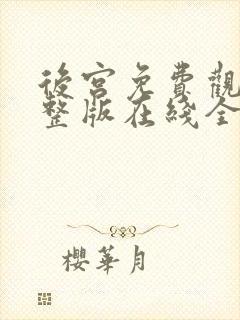 後宮免費觀
整版在綫全
櫻華月